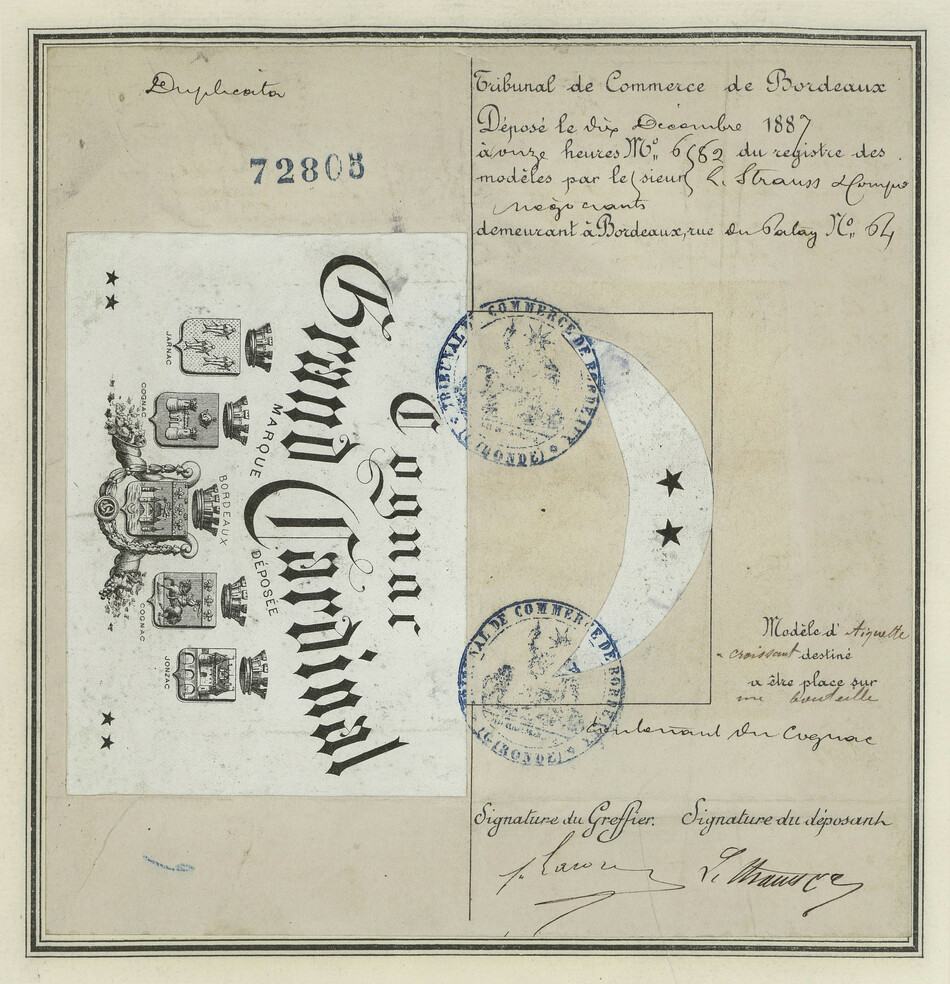 Duplicata
72805
Tribunal de Commerce de Bordeaux
Déposé le dix Décembre 1887
à onze heures Nº 6582 du registre des
modèles par le sieur L. Strauss & Comp
négociants
demeurant à Bordeaux, rue du Palay Nº 64
Cognac
Grand Cardinal
MARQUE DÉPOSÉE
JARNAC
COGNAC
BORDEAUX
COGNAC
JONZAC
TRIBUNAL DE COMMERCE DE BORDEAUX
(GIRONDE)
TRIBUNAL DE COMMERCE DE BORDEAUX
(GIRONDE)
Modèle d'étiquette
croissant destiné
a être place sur
une bouteille
contenant du Cognac
Signature du Greffier. Signature du déposant
L. Strauss